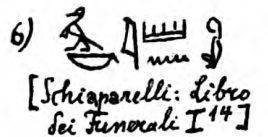 6) 𓏠𓈖
[Schiaparelli: Libro
dei Funerali I¹⁴]